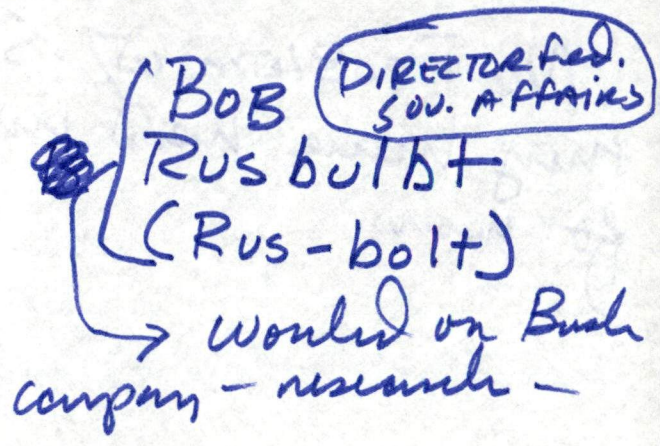 BOB
DIRECTOR FED.
GOV. AFFAIRS
Rusbulbt
(Rus-bolt)
worked on Bush
company - research -